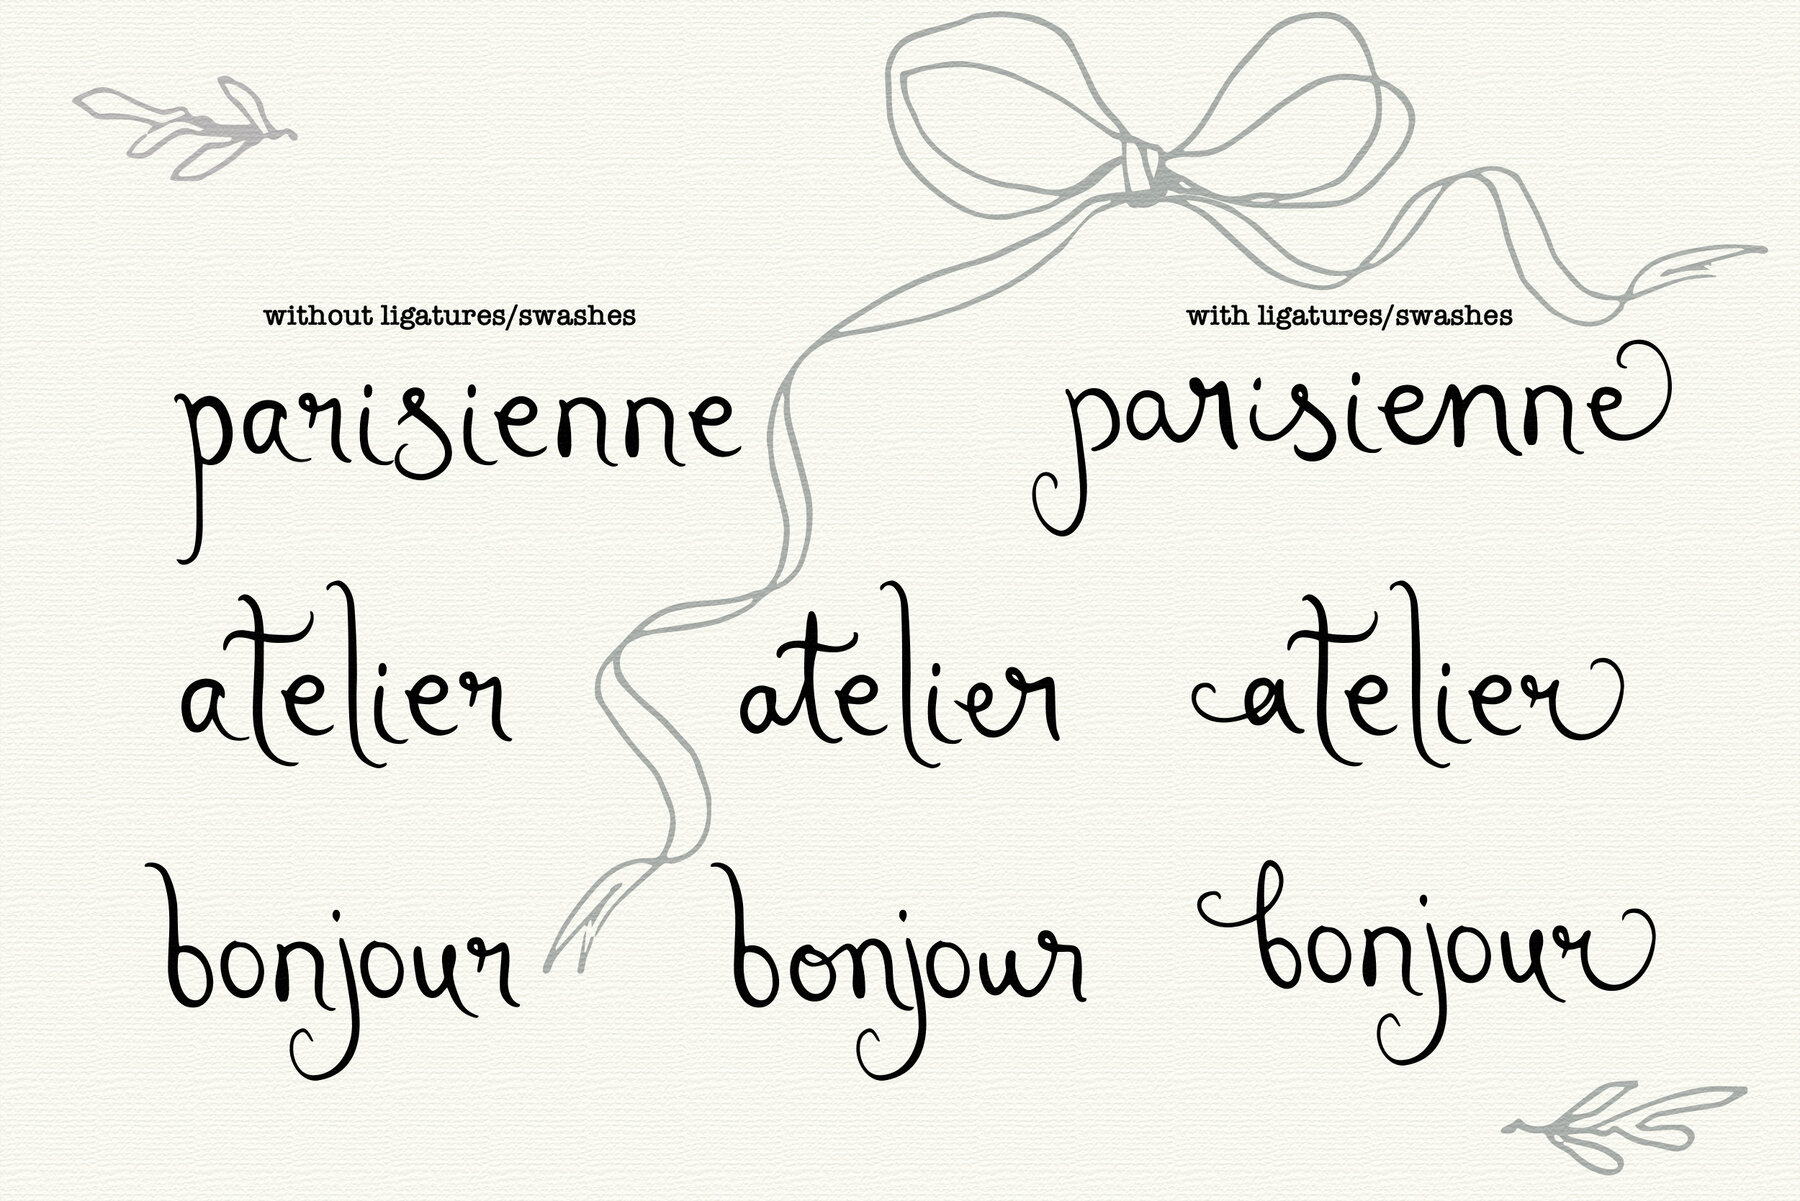 without ligatures/swashes with ligatures/swashes
parisienne parisienne
atelier atelier atelier
bonjour bonjour bonjour